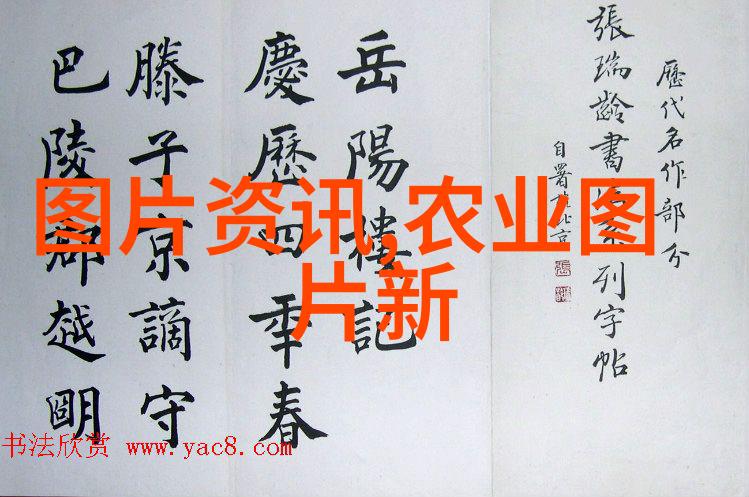 歷代名作部分
張瑞齡書法系列字帖
自署於北京
岳陽樓記
慶歷四年春
滕子京謫守
巴陵郡越明
图片资讯,农业图
片新
书法欣赏 www.yac8.com